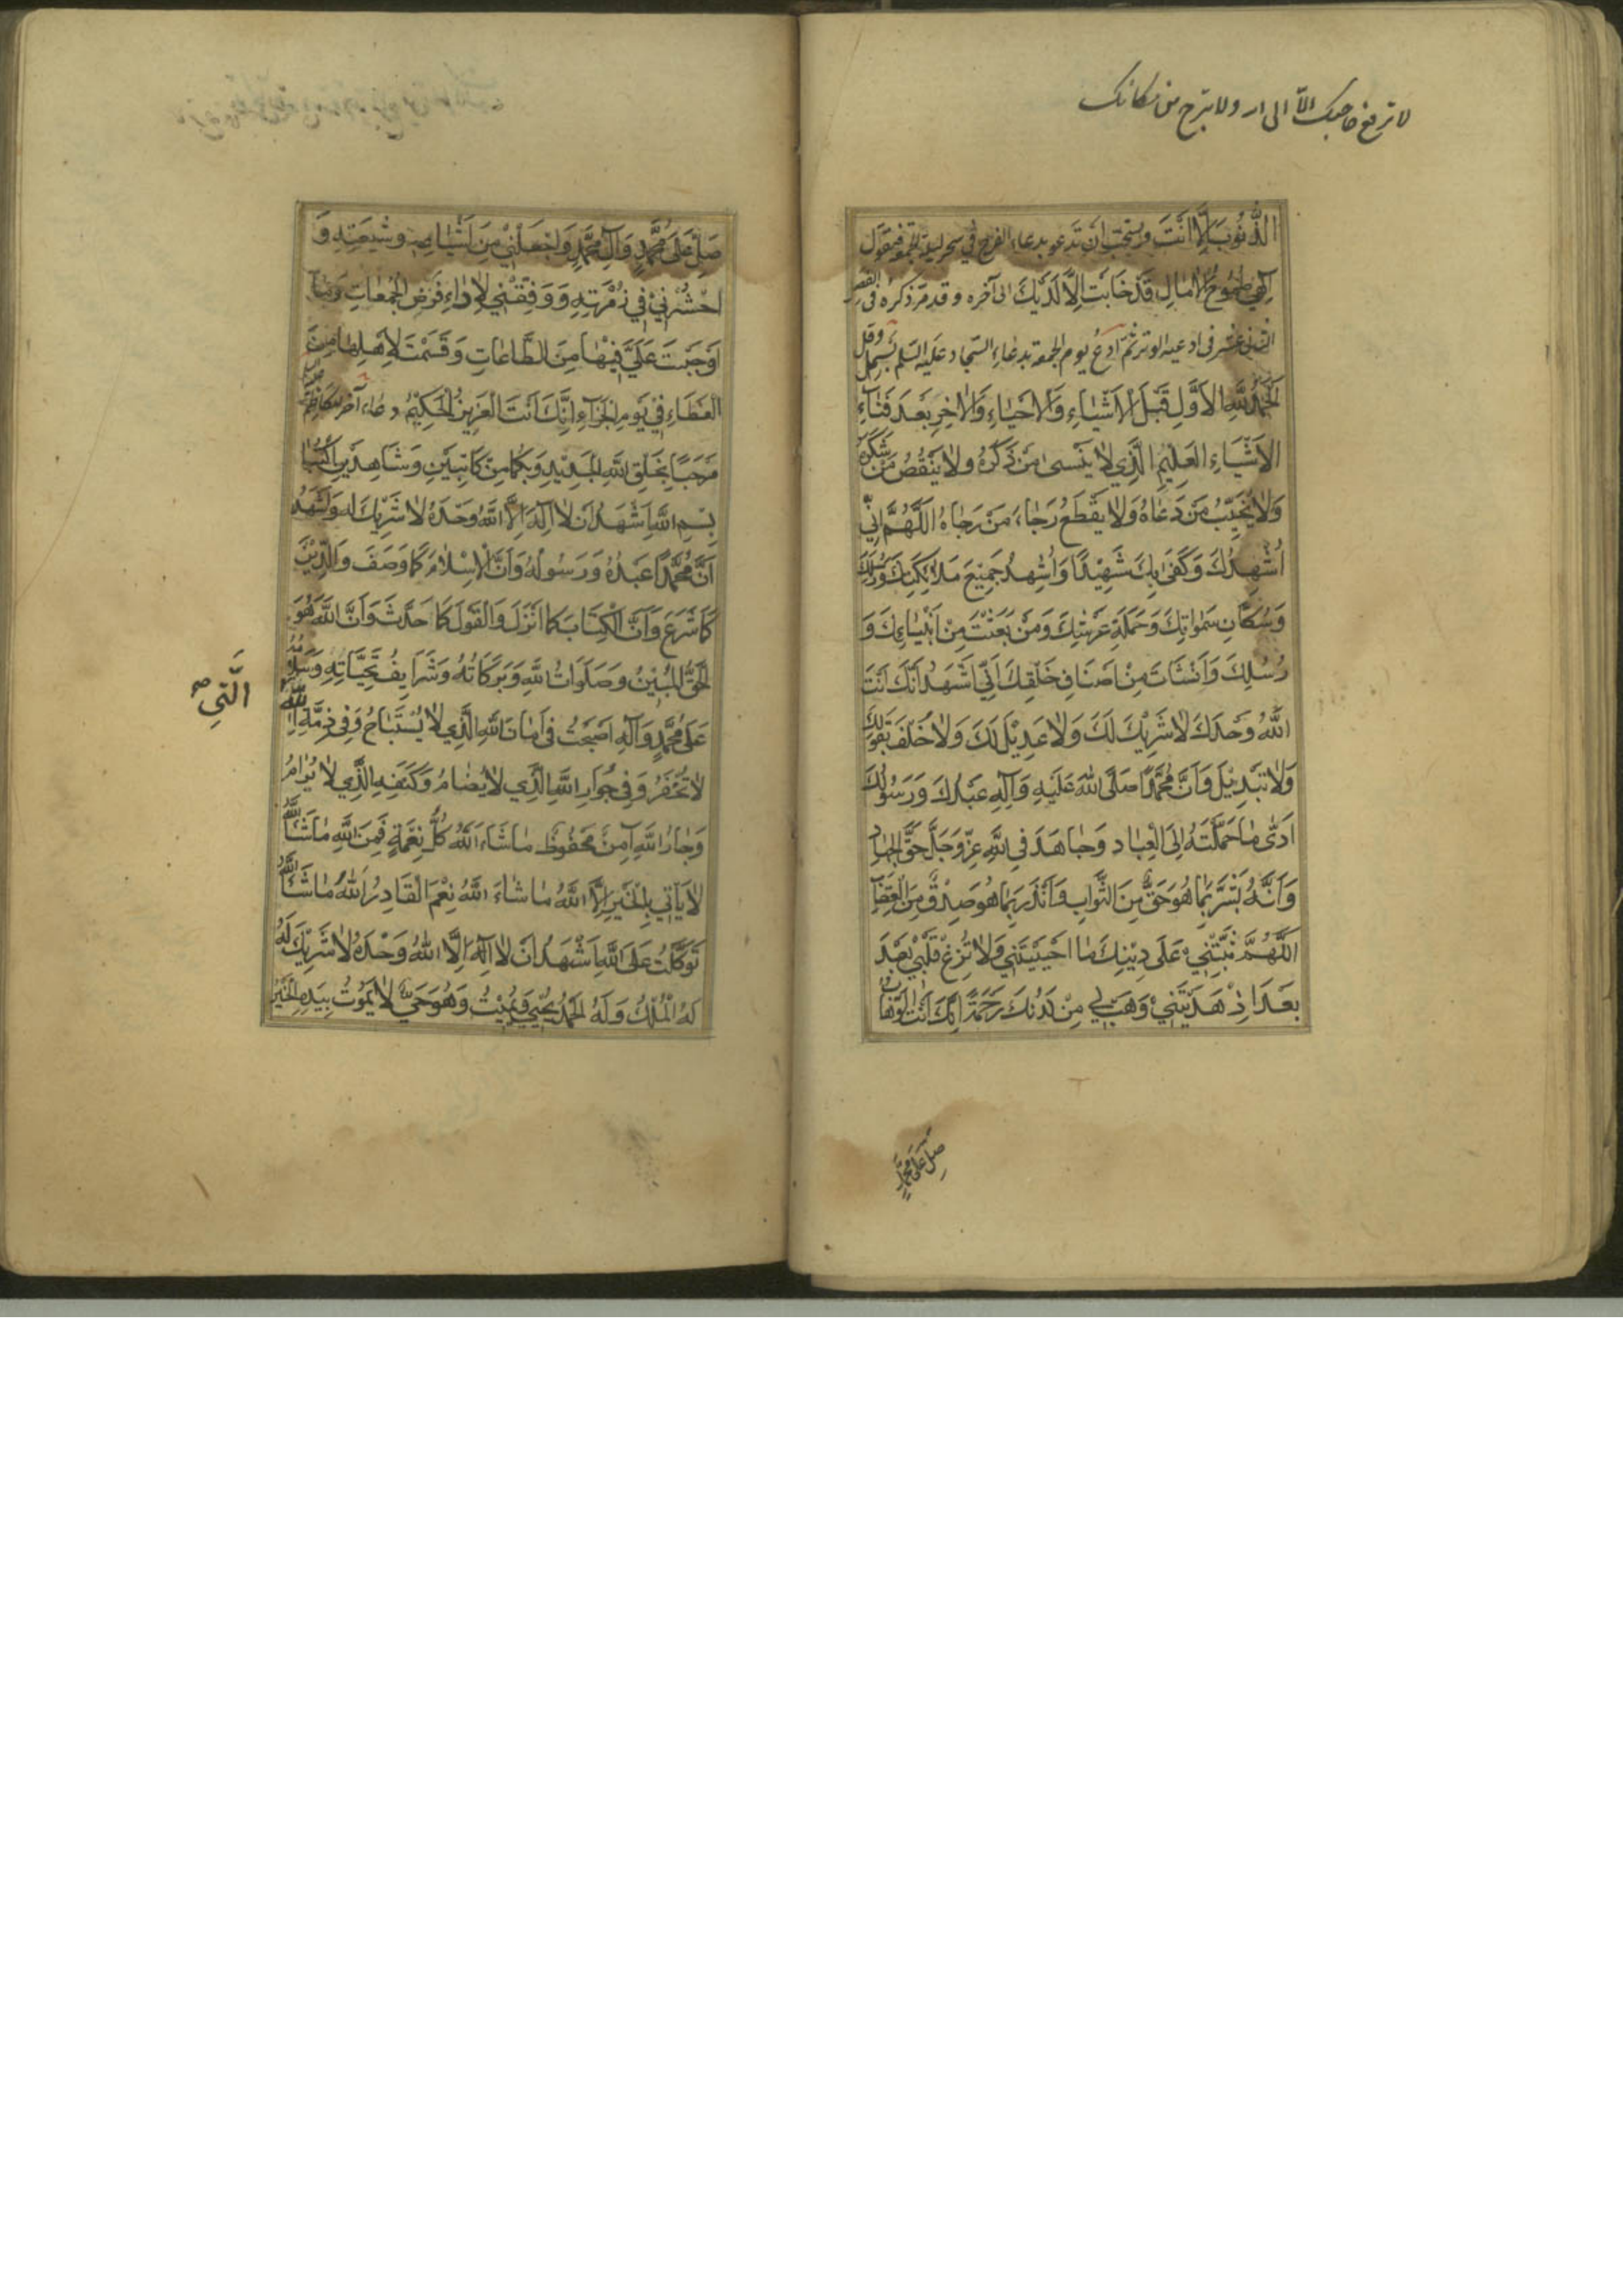 لا ترفع حاجتك الا الى احد ولا تبرح من مكانك
الذُّنُوبَ اِلَّا اَنْتَ ويستحبّ ان تدعو بدعاء الفرج في سحر ليلة الجمعة فيقول
اِلٰهي طُمُوحُ الْاٰمٰالِ قَدْ خٰابَتْ اِلَّا لَدَيْكَ الى آخره وقد مرّ ذكره فى الفصل
الثانى عشر فى ادعية الوتر ثمّ ادع يوم الجمعة بدعاء السّجاد عليه السّلم بسمل وقل
اَلْحَمْدُ لِلّٰهِ الْاَوَّلِ قَبْلَ الْاَشْيٰاءِ وَالْاَحْيٰاءِ وَالْاٰخِرِ بَعْدَ فَنٰاءِ
الْاَشْيٰاءِ الْعَلِيْمِ الَّذِي لٰا يَنْسىٰ مَنْ ذَكَرَهُ وَلٰا يَنْقُصُ مَنْ شَكَرَهُ
وَلٰا يُخَيِّبُ مَنْ دَعٰاهُ وَلٰا يَقْطَعُ رَجٰاءَ مَنْ رَجٰاهُ اَللّٰهُمَّ اِنِّي
اُشْهِدُكَ وَكَفىٰ بِكَ شَهِيْدًا وَاُشْهِدُ جَمِيْعَ مَلٰائِكَتِكَ وَرُسُلِكَ
وَسُكّٰانِ سَمٰوٰاتِكَ وَحَمَلَةِ عَرْشِكَ وَمَنْ بَعَثْتَ مِنْ اَنْبِيٰاءِكَ وَ
رُسُلِكَ وَاَنْشَاْتَ مِنْ اَصْنٰافِ خَلْقِكَ اَنِّي اَشْهَدُ اَنَّكَ اَنْتَ
اللّٰهُ وَحْدَكَ لٰا شَرِيْكَ لَكَ وَلٰا عَدِيْلَ لَكَ وَلٰا خُلْفَ لِقَوْلِكَ
وَلٰا تَبْدِيْلَ وَاَنَّ مُحَمَّدًا صَلَّى اللّٰهُ عَلَيْهِ وَآلِهِ عَبْدُكَ وَرَسُولُكَ
اَدّٰى مٰا حَمَّلْتَهُ اِلَى الْعِبٰادِ وَجٰاهَدَ فِي اللّٰهِ عَزَّ وَجَلَّ حَقَّ الْجِهٰادِ
وَاَنَّهُ بَشَّرَ بِمٰا هُوَ حَقٌّ مِنَ الثَّوٰابِ وَاَنْذَرَ بِمٰا هُوَ صِدْقٌ مِنَ الْعِقٰابِ
اَللّٰهُمَّ ثَبِّتْنِي عَلىٰ دِيْنِكَ مٰا اَحْيَيْتَنِي وَلٰا تُزِغْ قَلْبِي بَعْدَ
بَعْدَ اِذْ هَدَيْتَنِي وَهَبْ لِي مِنْ لَدُنْكَ رَحْمَةً اِنَّكَ اَنْتَ الْوَهّٰابُ
صَلِّ عَلىٰ مُحَمَّدٍ
صَلِّ عَلىٰ مُحَمَّدٍ وَآلِ مُحَمَّدٍ وَاجْعَلْنِي مِنْ اَتْبٰاعِهِ وَشِيْعَتِهِ وَ
احْشُرْنِي فِي زُمْرَتِهِ وَوَفِّقْنِي لِاَدٰاءِ فَرْضِ الْجُمُعٰاتِ وَمٰا
اَوْجَبْتَ عَلَيَّ فِيْهٰا مِنَ الطّٰاعٰاتِ وَقَسَمْتَ لِاَهْلِهٰا مِنَ
الْعَطٰاءِ فِي يَوْمِ الْجَزٰاءِ اِنَّكَ اَنْتَ الْعَزِيْزُ الْحَكِيْمُ دعاء آخر للكاظم
مَرْحَبًا بِخَلْقِ اللّٰهِ الْجَدِيْدِ وَبِكُمٰا مِنْ كٰاتِبَيْنِ وَشٰاهِدَيْنِ اُكْتُبٰا
بِسْمِ اللّٰهِ اَشْهَدُ اَنْ لٰا اِلٰهَ اِلَّا اللّٰهُ وَحْدَهُ لٰا شَرِيْكَ لَهُ وَاَشْهَدُ
اَنَّ مُحَمَّدًا عَبْدُهُ وَرَسُولُهُ وَاَنَّ الْاِسْلٰامَ كَمٰا وَصَفَ وَالدِّيْنَ
كَمٰا شَرَعَ وَاَنَّ الْكِتٰابَ كَمٰا اَنْزَلَ وَالْقَوْلَ كَمٰا حَدَّثَ وَاَنَّ اللّٰهَ هُوَ
الْحَقُّ الْمُبِيْنُ وَصَلَوٰاتُ اللّٰهِ وَبَرَكٰاتُهُ وَشَرٰايِفُ تَحِيّٰاتِهِ وَسَلٰامُهُ
عَلىٰ مُحَمَّدٍ وَآلِهِ اَصْبَحْتُ فِي اَمٰانِ اللّٰهِ الَّذِي لٰا يُسْتَبٰاحُ وَفِي ذِمَّةِ اللّٰهِ
اَلَّتِي
لٰا تُخْفَرُ وَفِي جِوٰارِ اللّٰهِ الَّذِي لٰا يُضٰامُ وَكَنَفِهِ الَّذِي لٰا يُرٰامُ
وَجٰارُ اللّٰهِ آمِنٌ مَحْفُوظٌ مٰا شٰاءَ اللّٰهُ كُلُّ نِعْمَةٍ فَمِنَ اللّٰهِ مٰا شٰاءَ اللّٰهُ
لٰا يَاْتِي بِالْخَيْرِ اِلَّا اللّٰهُ مٰا شٰاءَ اللّٰهُ نِعْمَ الْقٰادِرُ اللّٰهُ مٰا شٰاءَ اللّٰهُ
تَوَكَّلْتُ عَلَى اللّٰهِ اَشْهَدُ اَنْ لٰا اِلٰهَ اِلَّا اللّٰهُ وَحْدَهُ لٰا شَرِيْكَ لَهُ
لَهُ الْمُلْكُ وَلَهُ الْحَمْدُ يُحْيِي وَيُمِيْتُ وَهُوَ حَيٌّ لٰا يَمُوتُ بِيَدِهِ الْخَيْرُ